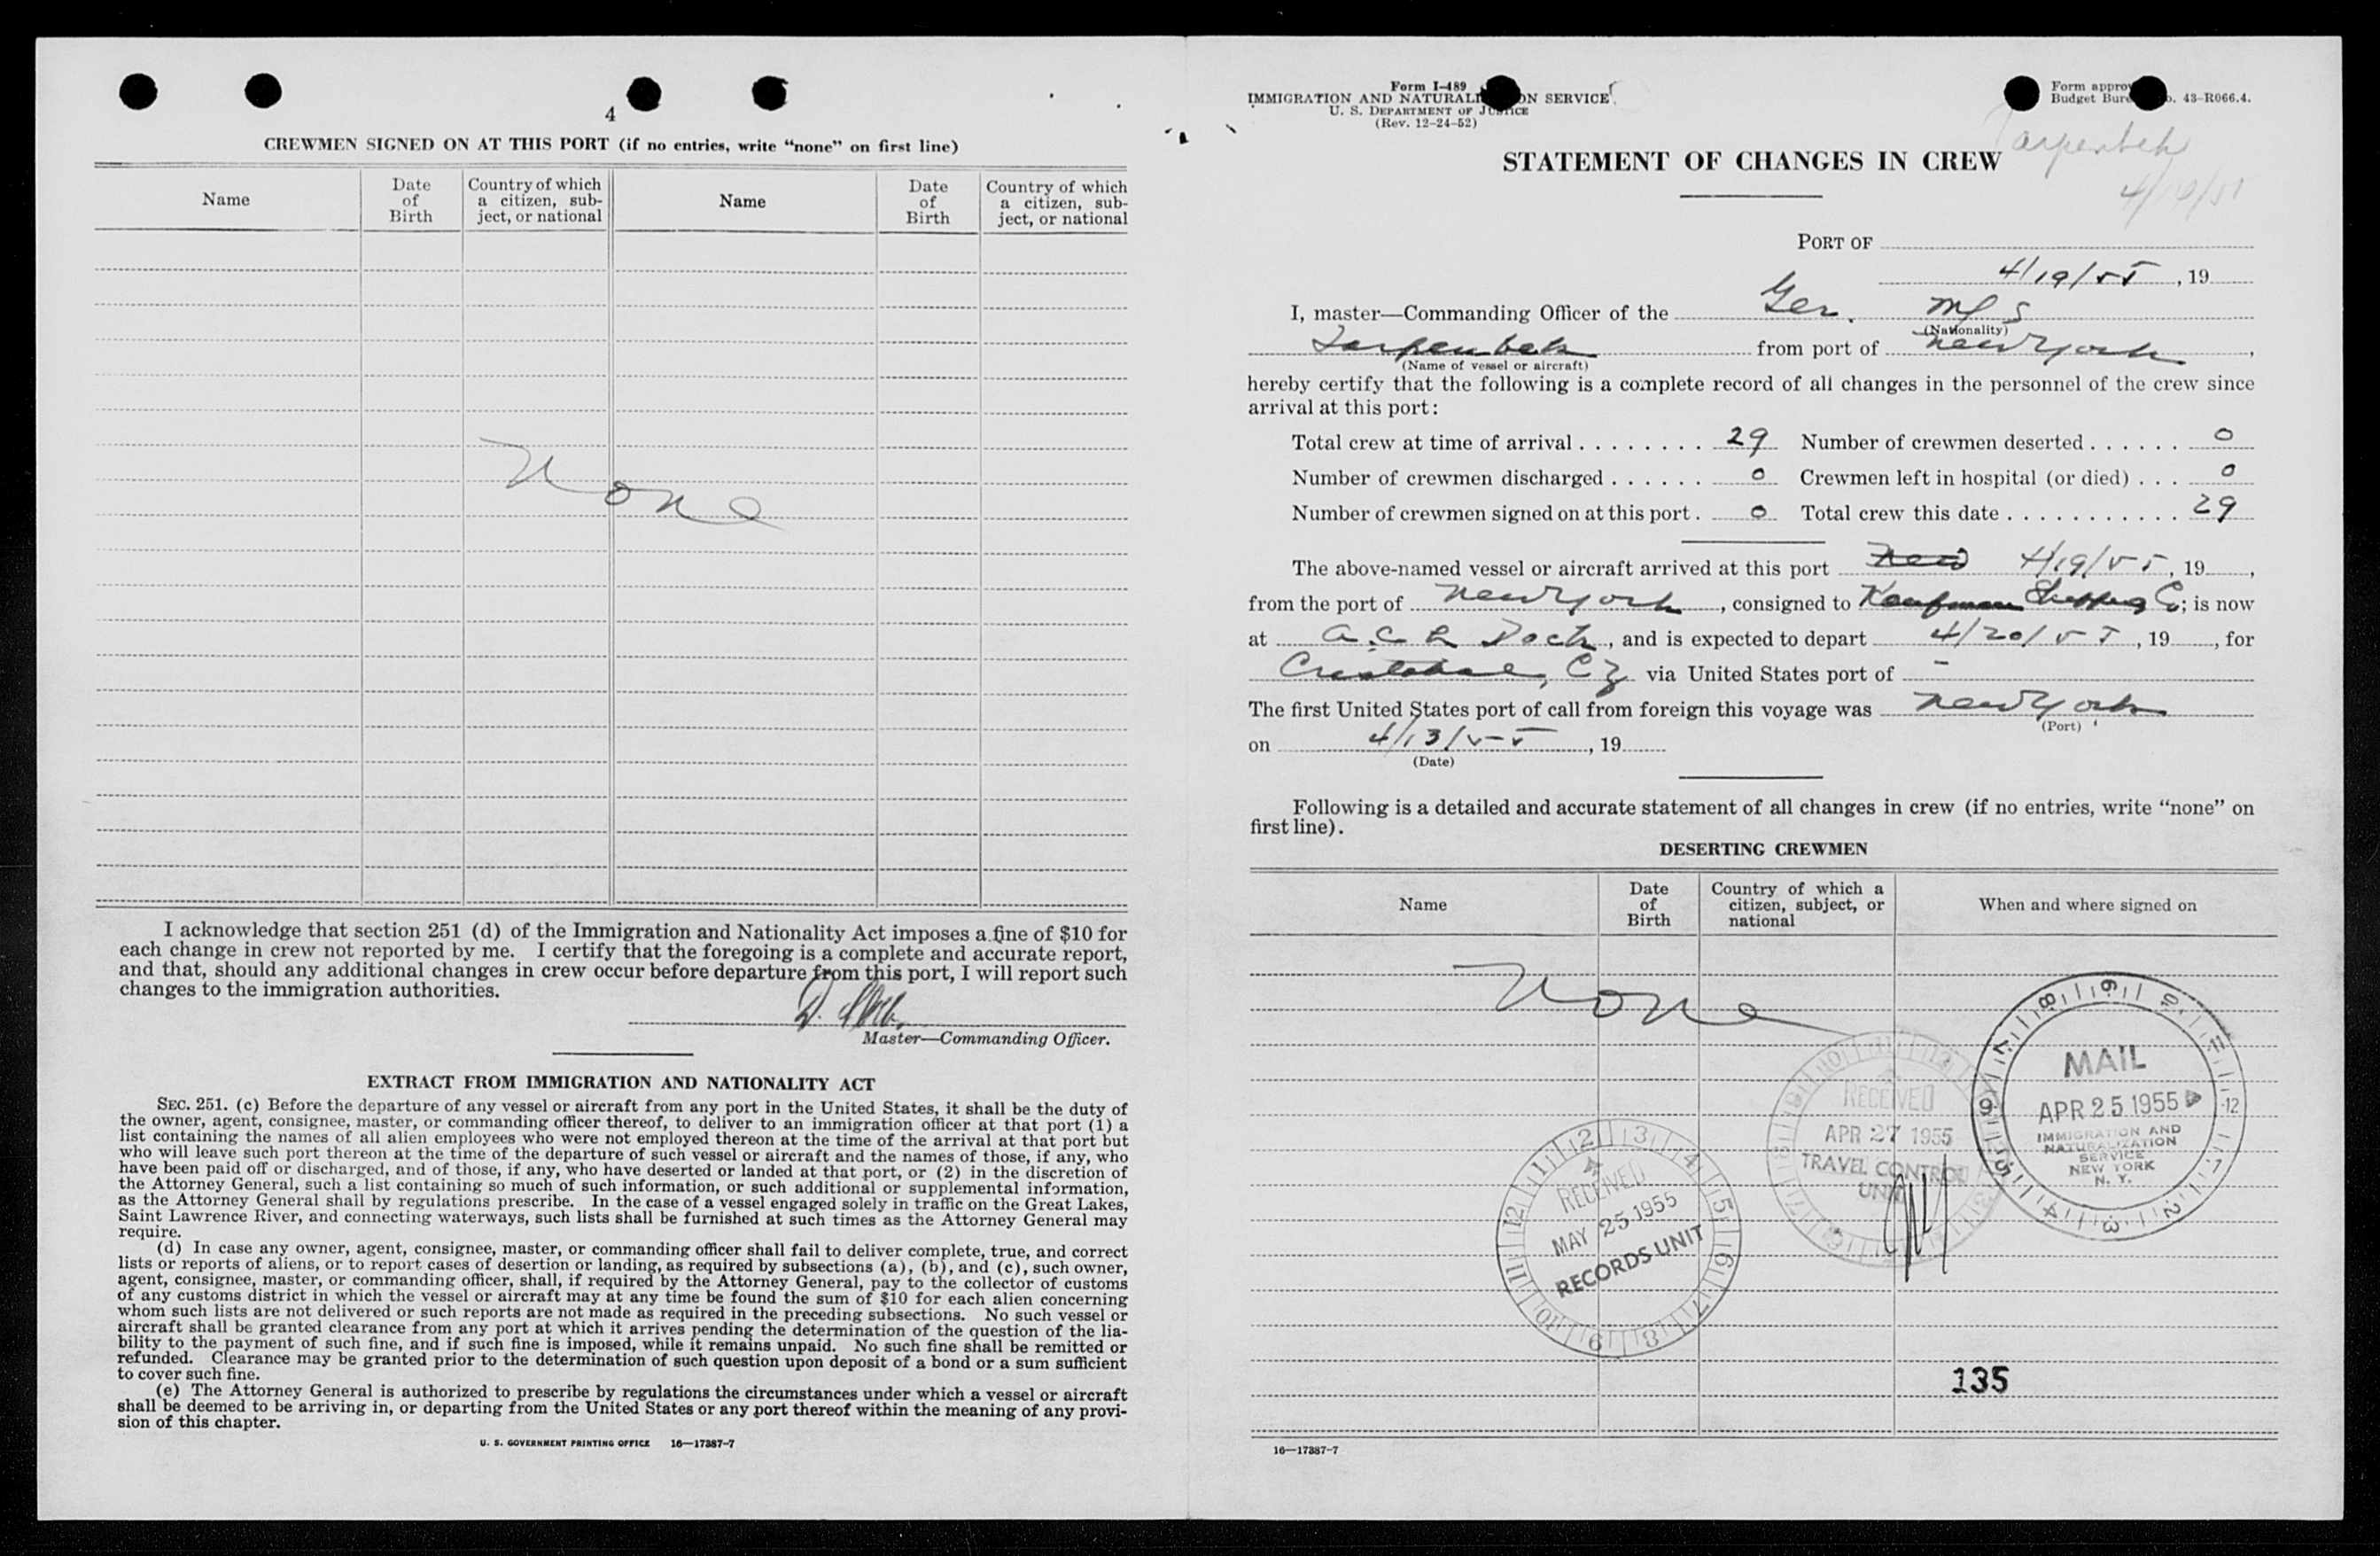 4
CREWMEN SIGNED ON AT THIS PORT (if no entries, write "none" on first line)
Name
Date of Birth
Country of which a citizen, sub-ject, or national
Name
Date of Birth
Country of which a citizen, sub-ject, or national
None
I acknowledge that section 251 (d) of the Immigration and Nationality Act imposes a fine of $10 for
each change in crew not reported by me. I certify that the foregoing is a complete and accurate report,
and that, should any additional changes in crew occur before departure from this port, I will report such
changes to the immigration authorities.
Master—Commanding Officer.
EXTRACT FROM IMMIGRATION AND NATIONALITY ACT
SEC. 251. (c) Before the departure of any vessel or aircraft from any port in the United States, it shall be the duty of
the owner, agent, consignee, master, or commanding officer thereof, to deliver to an immigration officer at that port (1) a
list containing the names of all alien employees who were not employed thereon at the time of the arrival at that port but
who will leave such port thereon at the time of the departure of such vessel or aircraft and the names of those, if any, who
have been paid off or discharged, and of those, if any, who have deserted or landed at that port, or (2) in the discretion of
the Attorney General, such a list containing so much of such information, or such additional or supplemental information,
as the Attorney General shall by regulations prescribe. In the case of a vessel engaged solely in traffic on the Great Lakes,
Saint Lawrence River, and connecting waterways, such lists shall be furnished at such times as the Attorney General may
require.
(d) In case any owner, agent, consignee, master, or commanding officer shall fail to deliver complete, true, and correct
lists or reports of aliens, or to report cases of desertion or landing, as required by subsections (a), (b), and (c), such owner,
agent, consignee, master, or commanding officer, shall, if required by the Attorney General, pay to the collector of customs
of any customs district in which the vessel or aircraft may at any time be found the sum of $10 for each alien concerning
whom such lists are not delivered or such reports are not made as required in the preceding subsections. No such vessel or
aircraft shall be granted clearance from any port at which it arrives pending the determination of the question of the lia-
bility to the payment of such fine, and if such fine is imposed, while it remains unpaid. No such fine shall be remitted or
refunded. Clearance may be granted prior to the determination of such question upon deposit of a bond or a sum sufficient
to cover such fine.
(e) The Attorney General is authorized to prescribe by regulations the circumstances under which a vessel or aircraft
shall be deemed to be arriving in, or departing from the United States or any port thereof within the meaning of any provi-
sion of this chapter.
U. S. GOVERNMENT PRINTING OFFICE 16—17387-7
Form I-489
IMMIGRATION AND NATURALI ON SERVICE
U. S. DEPARTMENT OF JUSTICE
(Rev. 12-24-52)
Form appro
Budget Bure o. 43-R066.4.
Tarpenbek
4/19/55
STATEMENT OF CHANGES IN CREW
PORT OF
4/19/55, 19
I, master—Commanding Officer of the Ger. M/S
(Nationality)
Tarpenbek from port of New York,
(Name of vessel or aircraft)
hereby certify that the following is a complete record of all changes in the personnel of the crew since
arrival at this port:
Total crew at time of arrival 29 Number of crewmen deserted 0
Number of crewmen discharged 0 Crewmen left in hospital (or died) 0
Number of crewmen signed on at this port 0 Total crew this date 29
The above-named vessel or aircraft arrived at this port New 4/19/55, 19 ,
from the port of New York, consigned to Kaufman Shipping Co; is now
at A.C.L Dock, and is expected to depart 4/20/55, 19 , for
Cristobal, CZ via United States port of -
The first United States port of call from foreign this voyage was New York
(Port)
on 4/13/55, 19
(Date)
Following is a detailed and accurate statement of all changes in crew (if no entries, write "none" on
first line).
DESERTING CREWMEN
Name
Date of Birth
Country of which a citizen, subject, or national
When and where signed on
None
MAIL
APR 25 1955
IMMIGRATION AND
NATURALIZATION
SERVICE
NEW YORK
N. Y.
RECEIVED
APR 27 1955
TRAVEL CONTROL
UNIT
RECEIVED
MAY 25 1955
RECORDS UNIT
135
16—17387-7